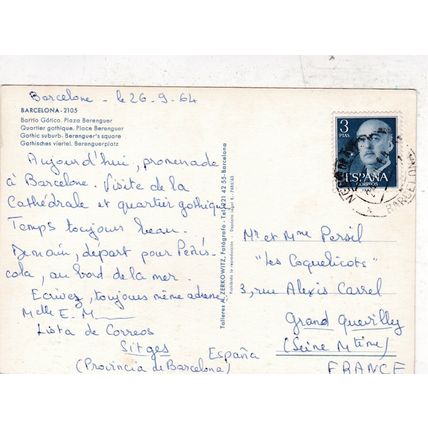 Barcelone - le 26-9-64
BARCELONA-2105
Barrio Gótico. Plaza Berenguer
Quartier gothique. Place Berenguer
Gothic suburb. Berenguer's square
Gothisches viertel. Berenguerplatz
Aujourd'hui, promenade
à Barcelone. Visite de la
Cathédrale et quartier gothique
Temps toujours beau.
Demain, départ pour Peñis-
cola, au bord de la mer.
Ecrivez, toujours même adresse
Melle E. M
Lista de Correos
Sitges
España
(Provincia de Barcelona)
Talleres A. ZERKOWITZ, Fotógrafo - Tel. 221 42 55 - Barcelona
3
PTAS
ESPAÑA
CORREOS
BARCELONA
Mr et Mme Persil
"les Coquelicots"
3, rue Alexis Carrel
Grand Quevilly
(Seine Mtime)
FRANCE